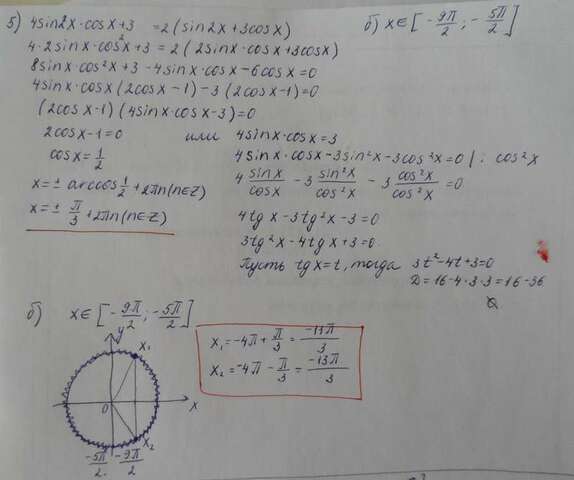 5) 4sin2x·cosx+3 =2(sin2x+3cosx) б) x∈[-9π/2; -5π/2]
4·2sinx·cos²x+3=2(2sinx·cosx+3cosx)
8sinx·cos²x+3-4sinx·cosx-6cosx=0
4sinx·cosx(2cosx-1)-3(2cosx-1)=0
(2cosx-1)(4sinx·cosx-3)=0
2cosx-1=0 или 4sinx·cosx=3
cosx=1/2 4sinx·cosx-3sin²x-3cos²x=0 |:cos²x
x=± arccos 1/2+2πn(n∈Z) 4 sinx/cosx -3 sin²x/cos²x -3 cos²x/cos²x =0
x=± π/3+2πn(n∈Z) 4tgx-3tg²x-3=0
3tg²x-4tgx+3=0
Пусть tgx=t, тогда 3t²-4t+3=0
D=16-4·3·3=16-36
∅
б) x∈[-9π/2; -5π/2]
y
x₁
0
x
x₂
-5π/2. -9π/2
x₁=-4π+π/3=-13π/3
x₂=-4π-π/3=-13π/3